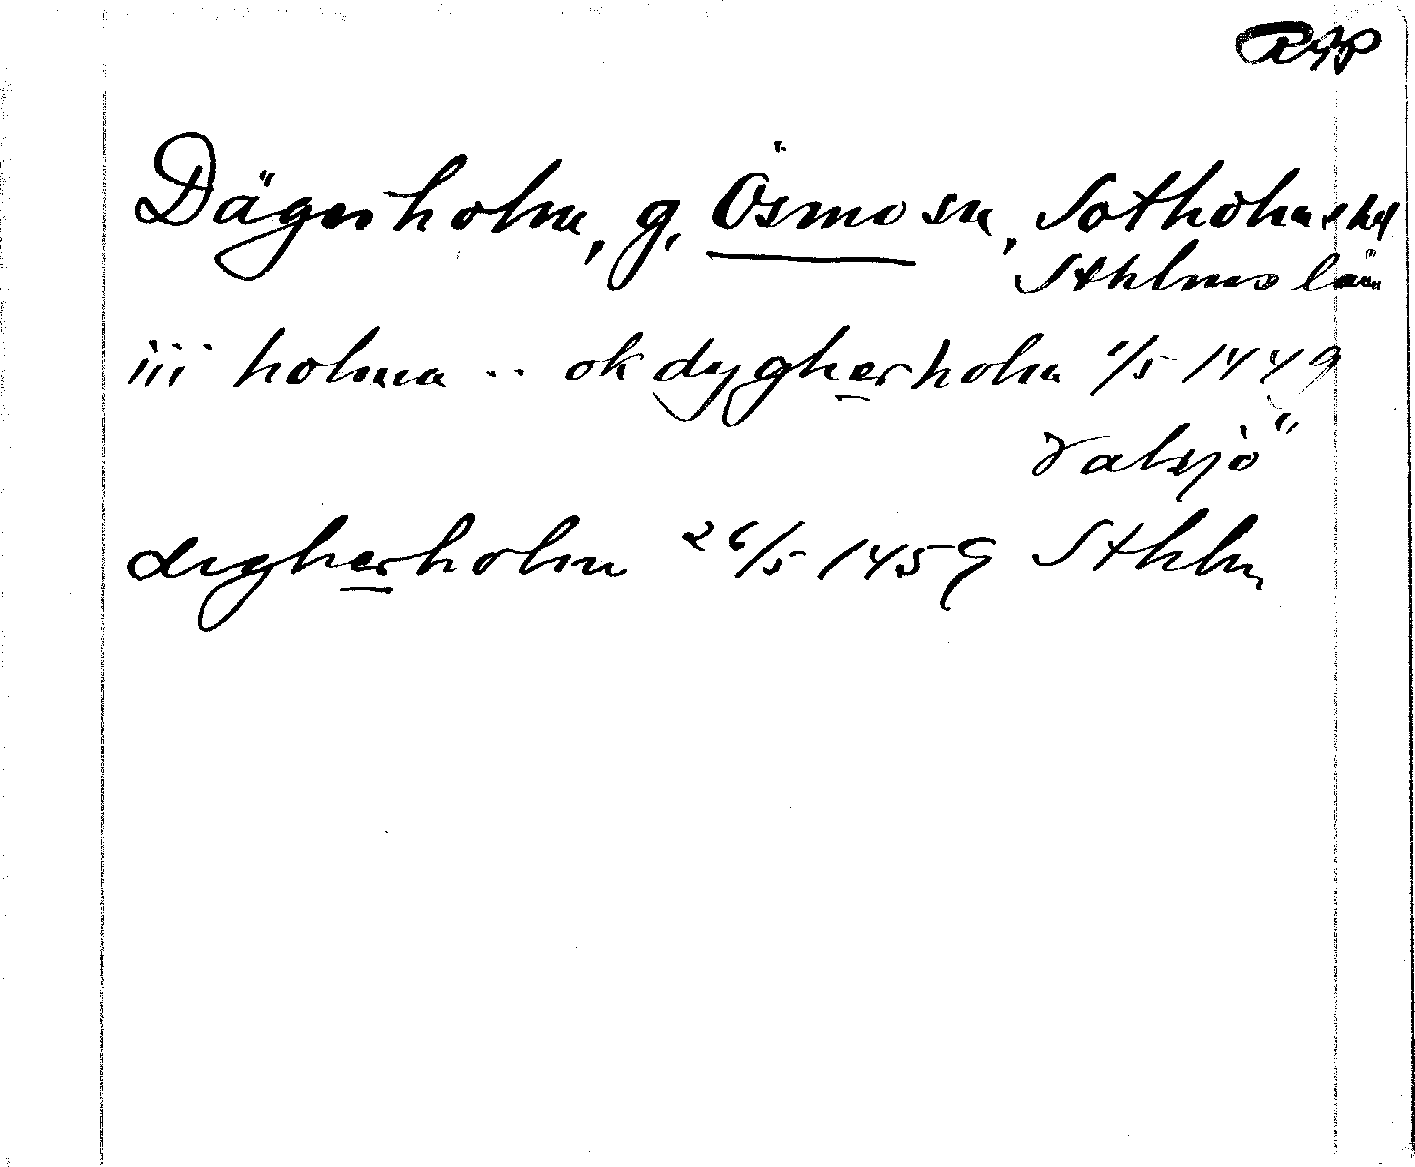 RAP
Dägerholm, g, Ösmo sn, Sotholms hd
Sthlms län
iii holma .. ok dygherholm 1/5 1449
Valsjö
digherholm 26/5 1459 Sthlm